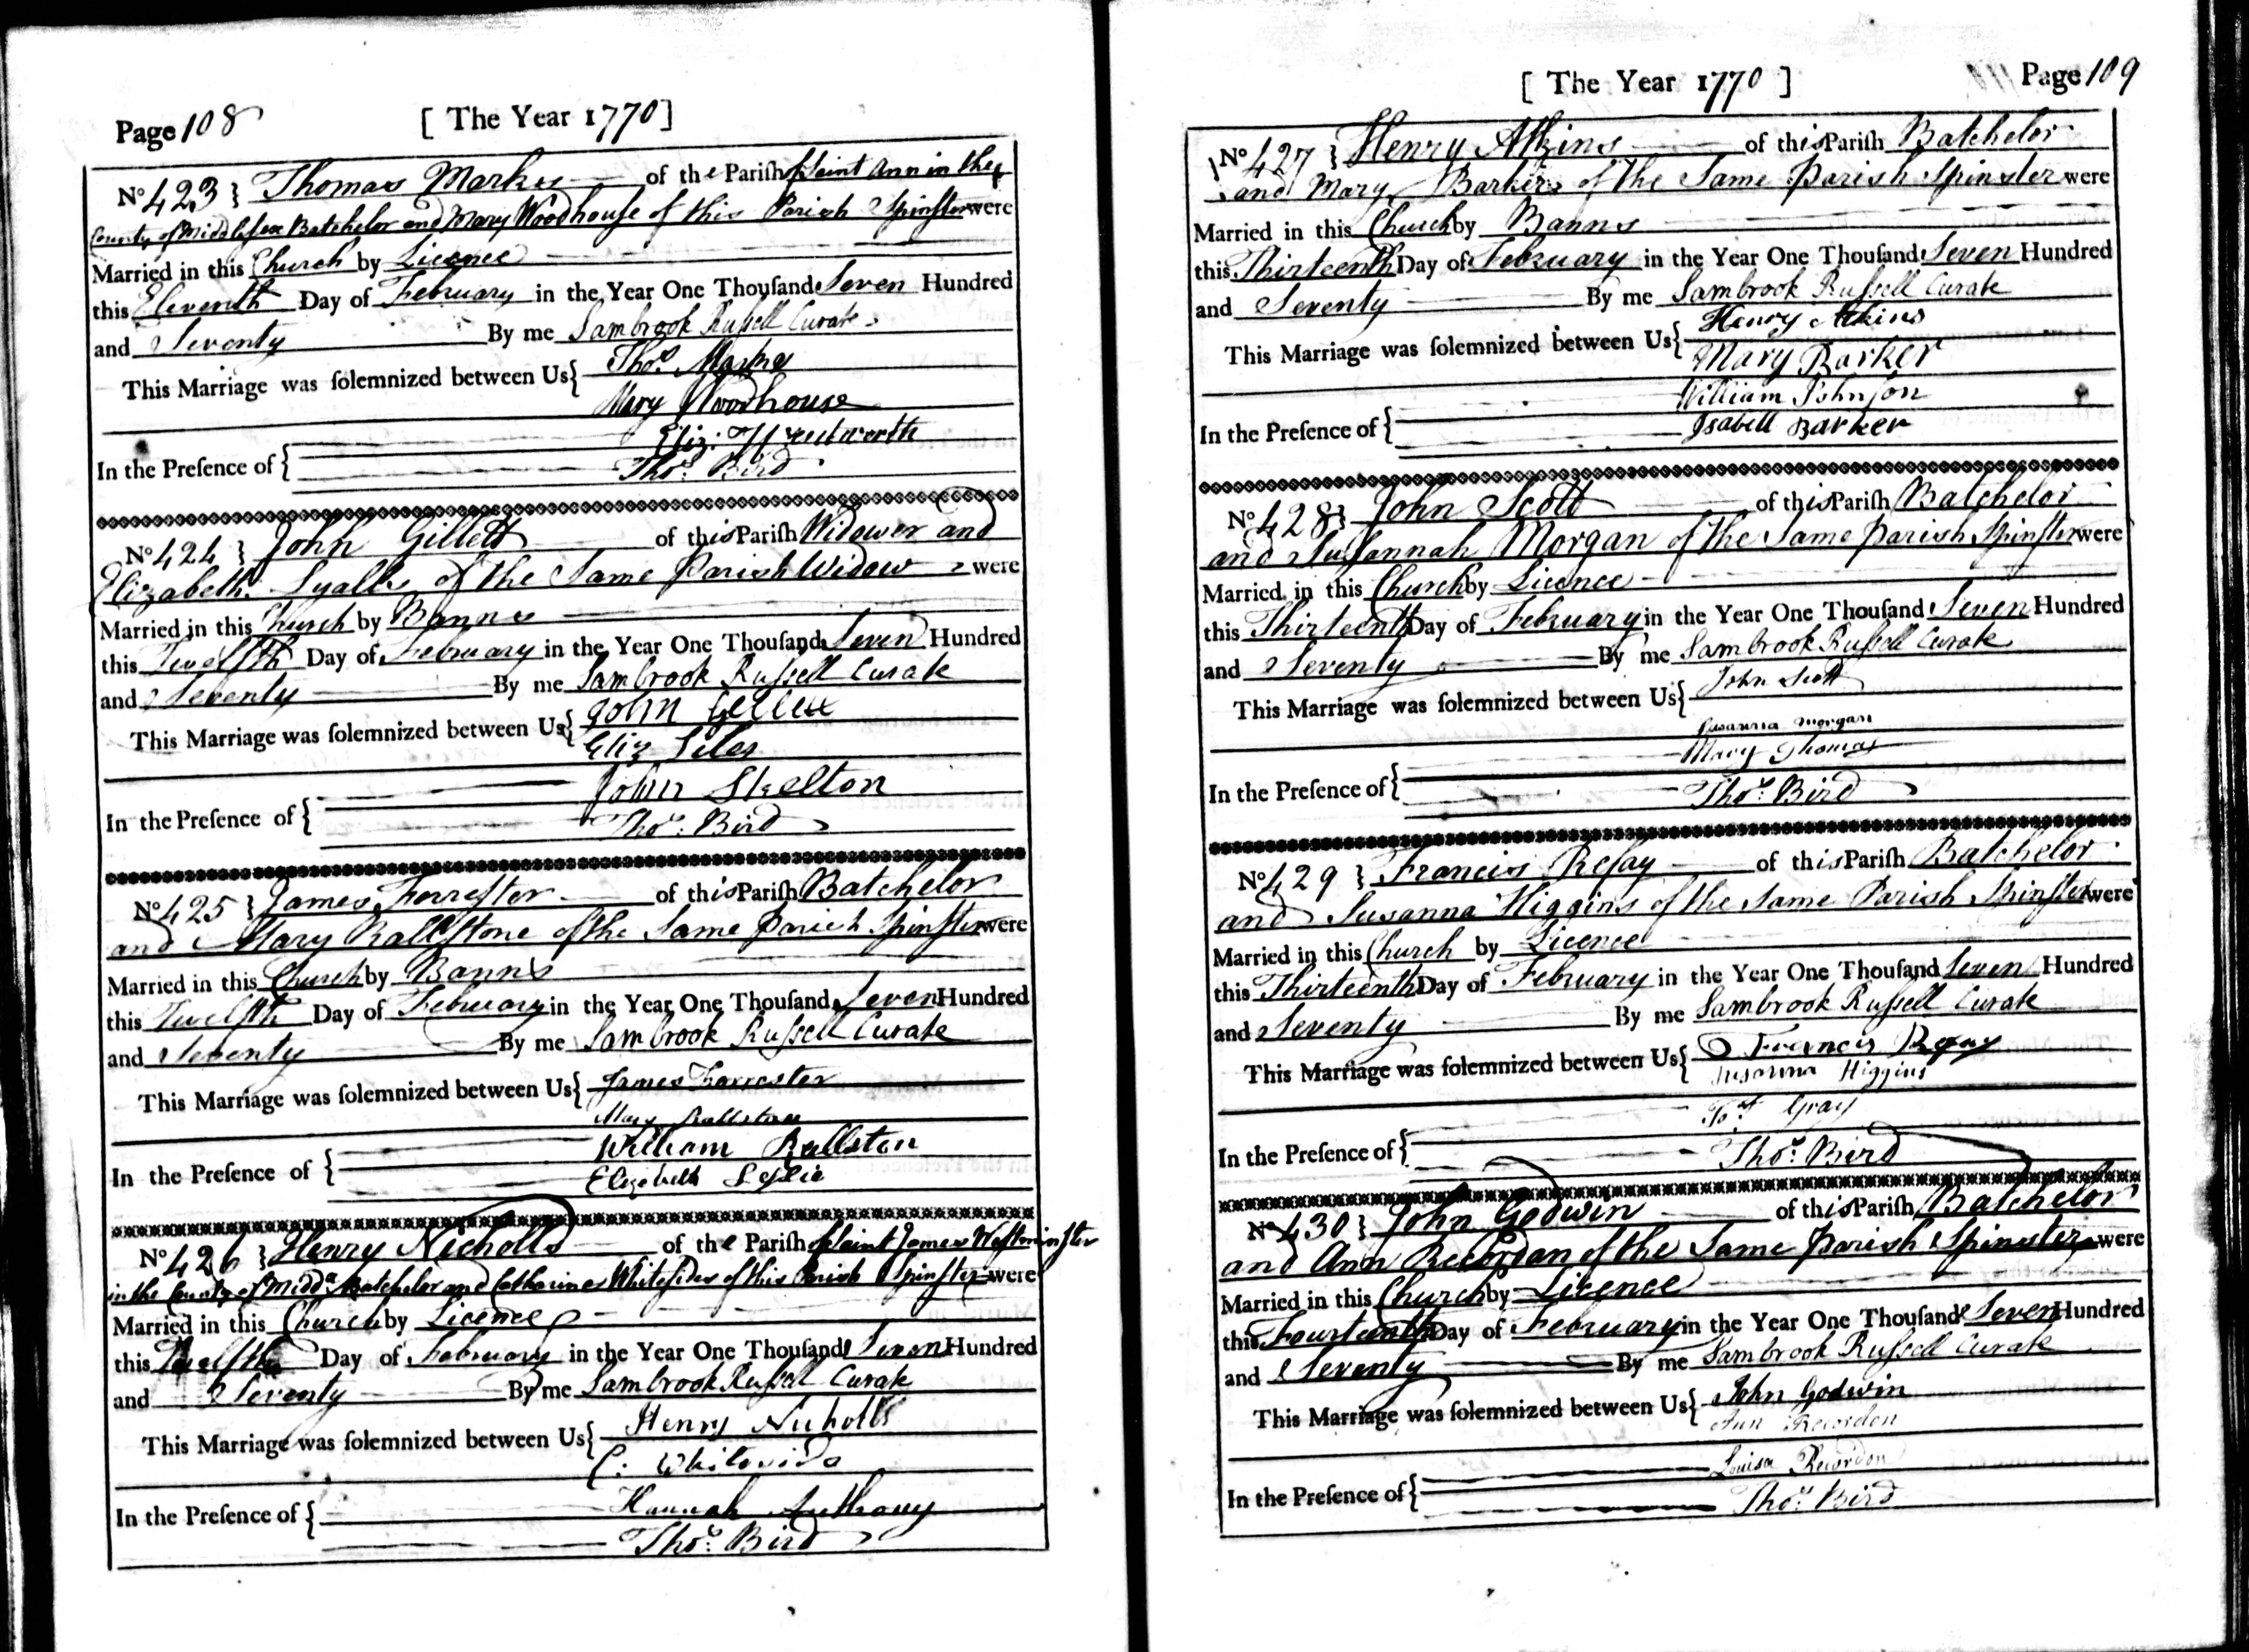 Page 108 [ The Year 1770 ]
No 423 } Thomas Marks of the Parish of Saint Ann in the
County of Middlesex Batchelor and Mary Woodhouse of this Parish Spinster were
Married in this Church by Licence
this Eleventh Day of February in the Year One Thousand Seven Hundred
and Seventy By me Sambrook Russell Curate
This Marriage was solemnized between Us { Thos. Marks
Mary Woodhouse
Eliz:
In the Presence of { Thos. Bird
No 424 } John Gillett of this Parish Widower and
Elizabeth of the Same Parish Widow were
Married in this Church by Banns
this Twelfth Day of February in the Year One Thousand Seven Hundred
and Seventy By me Sambrook Russell Curate
This Marriage was solemnized between Us { John Gellett
Eliz
John Skelton
In the Presence of { Thos. Bird
No 425 } James Forrester of this Parish Batchelor
and Mary Rallstone of the Same Parish Spinster were
Married in this Church by Banns
this Twelfth Day of February in the Year One Thousand Seven Hundred
and Seventy By me Sambrook Russell Curate
This Marriage was solemnized between Us { James Forrester
Mary Rallstone
William Rallston
In the Presence of { Elizebeth Leslie
No 426 } Henry Nicholls of the Parish of Saint James Westminster
in the County of Midda. Batchelor and Catharine Whitesides of this Parish Spinster were
Married in this Church by Licence
this Twelfth Day of February in the Year One Thousand Seven Hundred
and Seventy By me Sambrook Russell Curate
This Marriage was solemnized between Us { Henry Nicholls
C:
In the Presence of { Hannah Anthony
Thos. Bird
[ The Year 1770 ] Page 109
No 427 } Henry Atkins of this Parish Batchelor
and Mary Barker of the Same Parish Spinster were
Married in this Church by Banns
this Thirteenth Day of February in the Year One Thousand Seven Hundred
and Seventy By me Sambrook Russell Curate
This Marriage was solemnized between Us { Henry Atkins
Mary Barker
William Johnson
In the Presence of { Isabell Barker
No 428 } John Scott of this Parish Batchelor
and Susannah Morgan of the Same Parish Spinster were
Married in this Church by Licence
this Thirteenth Day of February in the Year One Thousand Seven Hundred
and Seventy By me Sambrook Russell Curate
This Marriage was solemnized between Us { John Scott
Susanna Morgan
Mary Thomas
In the Presence of { Thos. Bird
No 429 } Francis Refay of this Parish Batchelor
and Susanna Higgins of the Same Parish Spinster were
Married in this Church by Licence
this Thirteenth Day of February in the Year One Thousand Seven Hundred
and Seventy By me Sambrook Russell Curate
This Marriage was solemnized between Us { Francis Refay
Susanna Higgins
Gray
In the Presence of { Thos. Bird
No 430 } John Godwin of this Parish Batchelor
and Ann Recordon of the Same Parish Spinster were
Married in this Church by Licence
this Fourteenth Day of February in the Year One Thousand Seven Hundred
and Seventy By me Sambrook Russell Curate
This Marriage was solemnized between Us { John Godwin
Ann Recordon
Louisa Recordon
In the Presence of { Thos. Bird